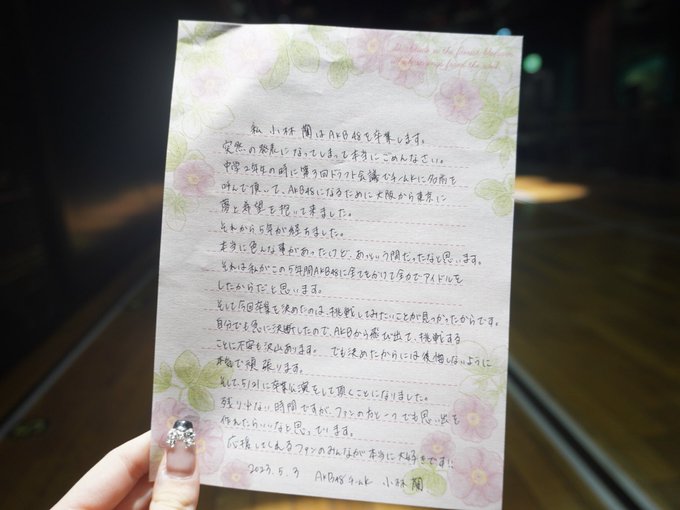 私 小林 蘭はAKB48を卒業します。
突然の発表になってしまって本当にごめんなさい。
中学2年生の時に第3回ドラフト会議でチームKに名前を
呼んで頂いて、AKB48になるために大阪から東京に
夢と希望を抱いて来ました。
それから5年が経ちました。
本当に色んな事があったけど、あっという間だったなと思います。
それは私がこの5年間AKB48に全てをかけて全力でアイドルを
したからだと思います。
そして今回卒業を決めたのは、挑戦してみたいことが見つかったからです。
自分でも急に決断したので、AKBから飛び出て、挑戦する
ことに不安も沢山あります。でも決めたからには後悔しないように
本気で頑張ります。
そして5/21に卒業公演をして頂くことになりました。
残り少ない時間ですが、ファンの方と1つでも思い出を
作れたらいいなと思っています。
応援してくれるファンのみんなが本当に大好きです!!
2023.5.3 AKB48 チームK 小林 蘭